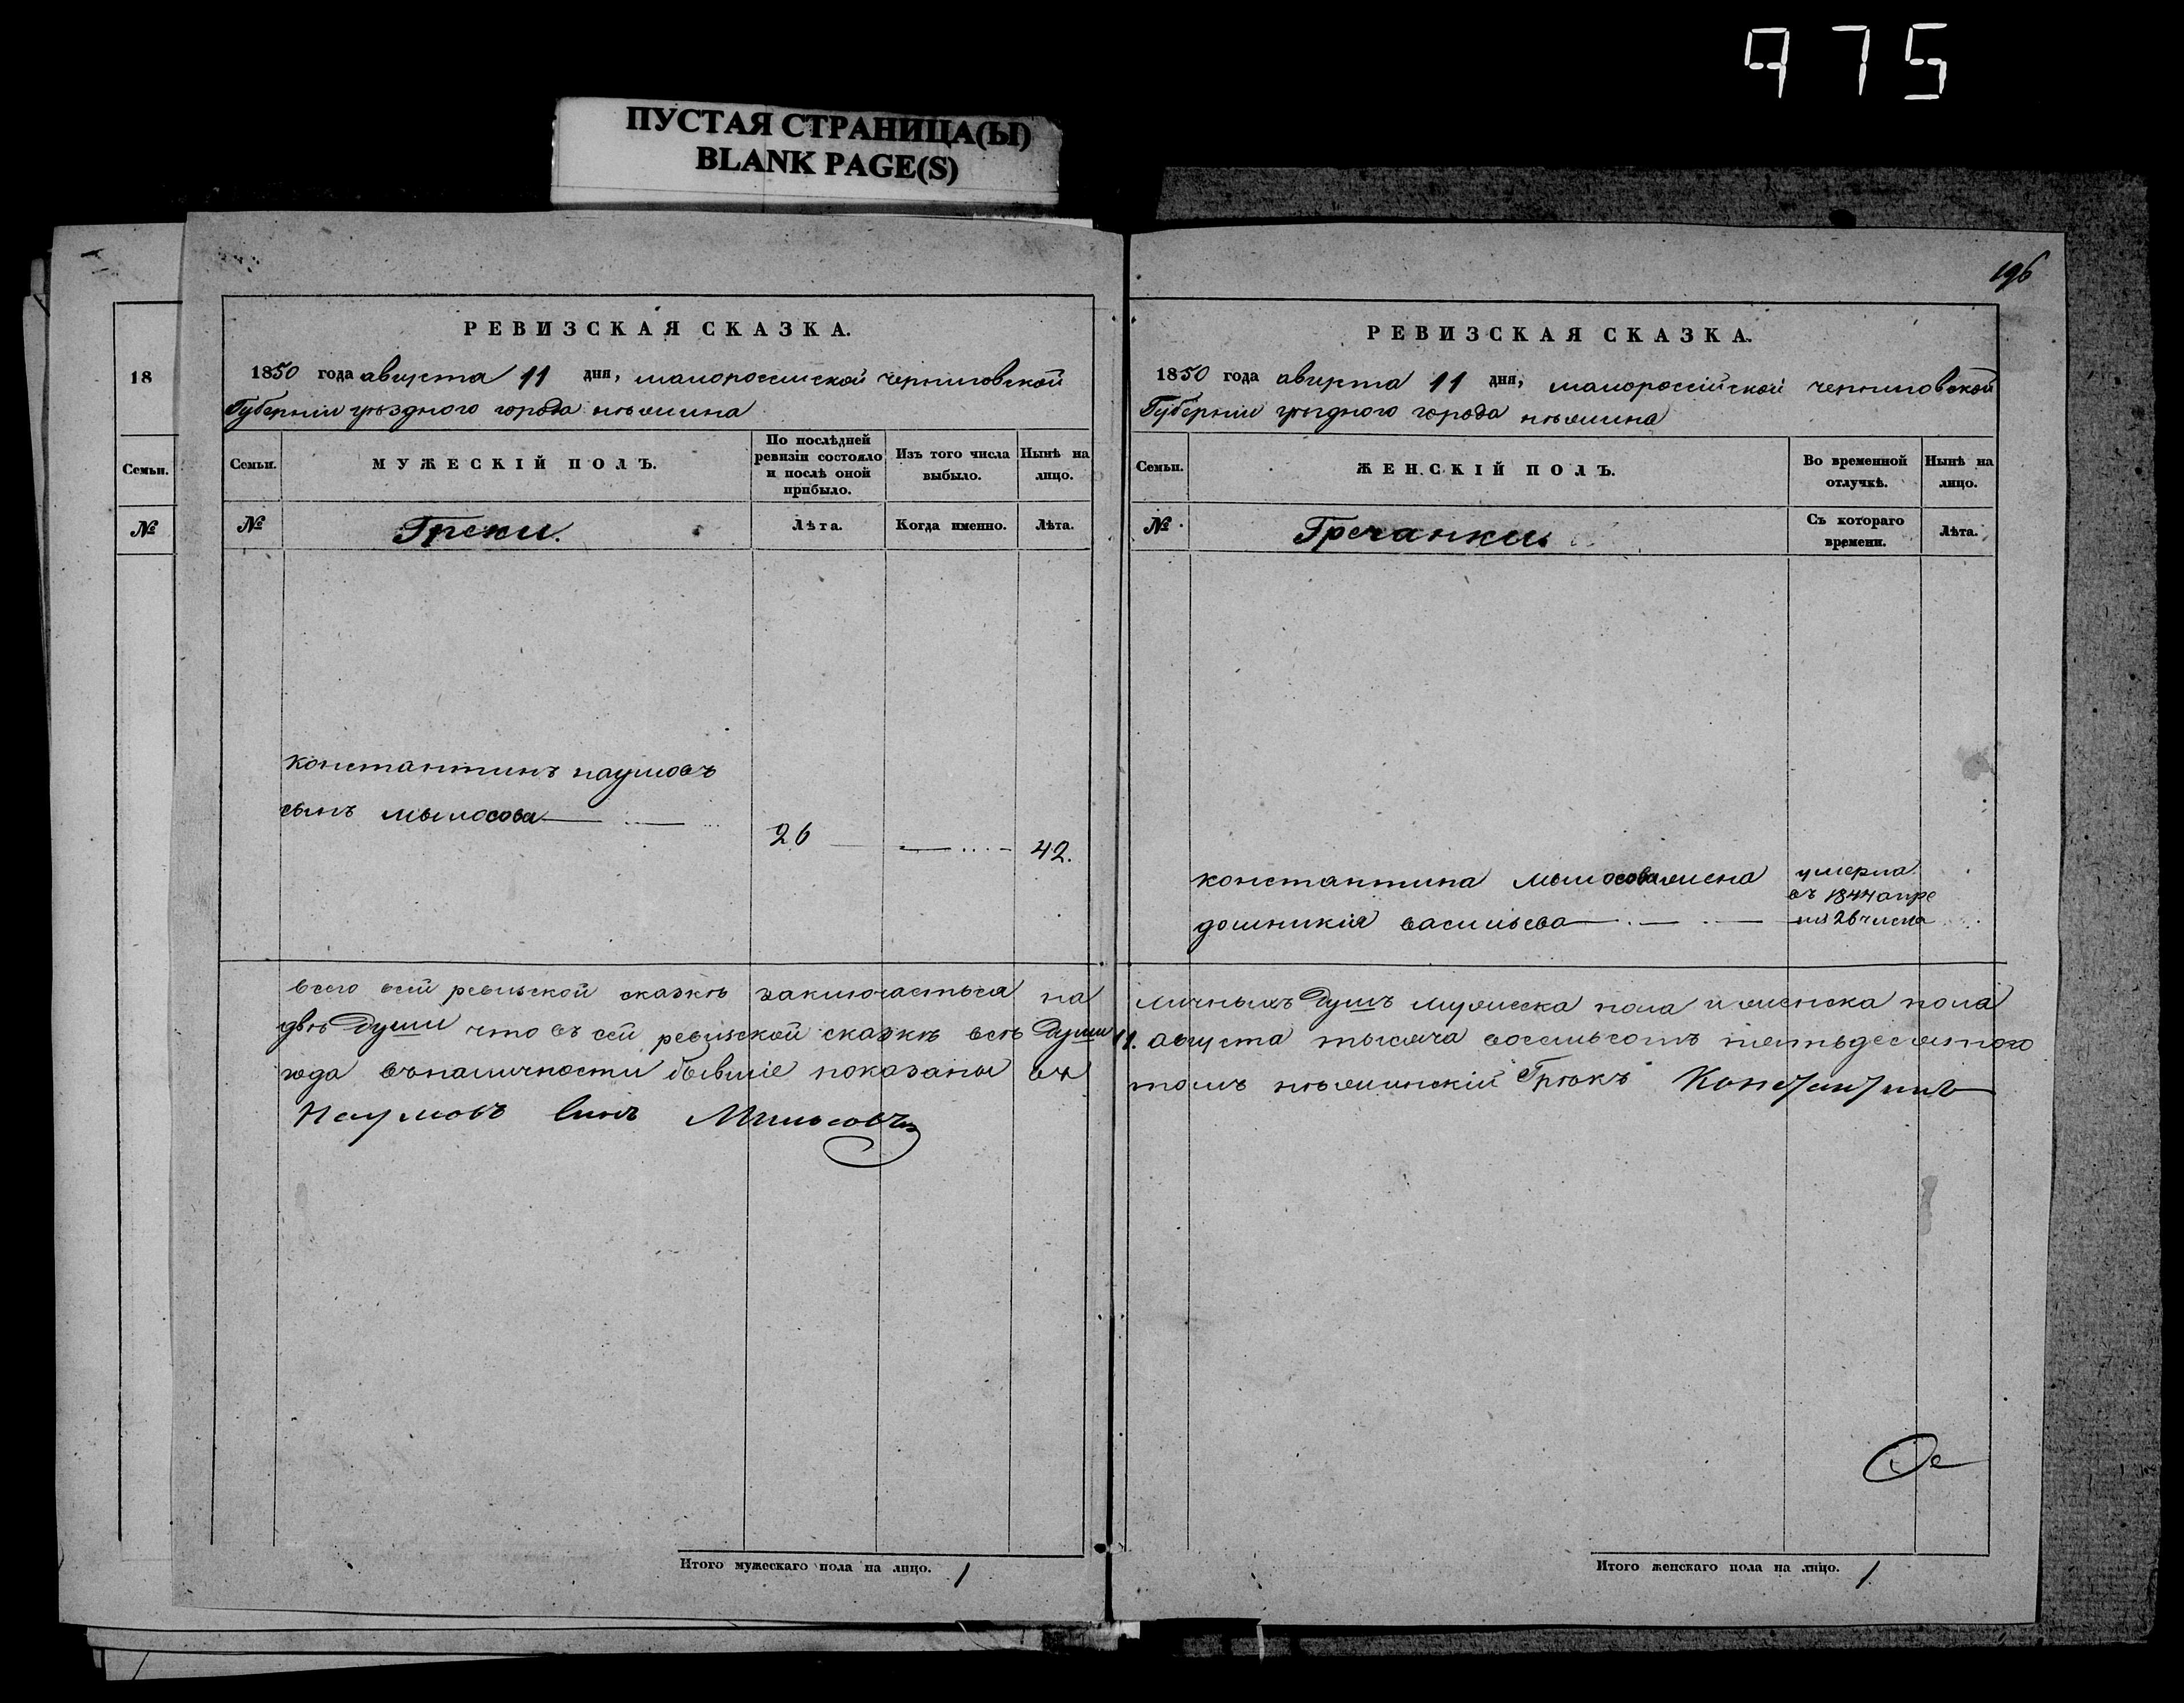 975
ПУСТАЯ СТРАНИЦА(Ы)
BLANK PAGE(S)
18
Семьи.
№
РЕВИЗСКАЯ СКАЗКА.
1850 года августа 11 дня, малороссийской черниговской
Губернии уѣздного города нѣжина
Семьи.
МУЖЕСКІЙ ПОЛЪ.
По послѣдней ревизіи состояло и послѣ оной прибыло.
Изъ того числа выбыло.
Нынѣ на лицо.
№
Греки.
Лѣта.
Когда именно.
Лѣта.
константинъ наумовъ
сынъ мылосова
26
42.
всего всей ревизской сказкѣ заключаеться на
двѣ Души что въ сей ревизской сказкѣ всѣ Души
года въналичности бывшіе показаны въ
Наумовъ Синъ
Итого мужескаго пола на лицо. 1
196
РЕВИЗСКАЯ СКАЗКА.
1850 года августа 11 дня, малороссійской черниговской
Губерніи уѣздного города нѣжина
Семьи.
ЖЕНСКІЙ ПОЛЪ.
Во временной отлучкѣ.
Нынѣ на лицо.
№
Гречанки
Съ котораго времени.
Лѣта.
константина мылосова жена
домникія васильева
умерла
въ 1844 апре
ля 26 числа
личныхъ Душъ мужеска пола и женска пола
11. августа тысяча восемьсотъ пятьдесятого
томъ нѣжинскій Грѣкъ Константинъ
Итого женскаго пола на лицо. 1